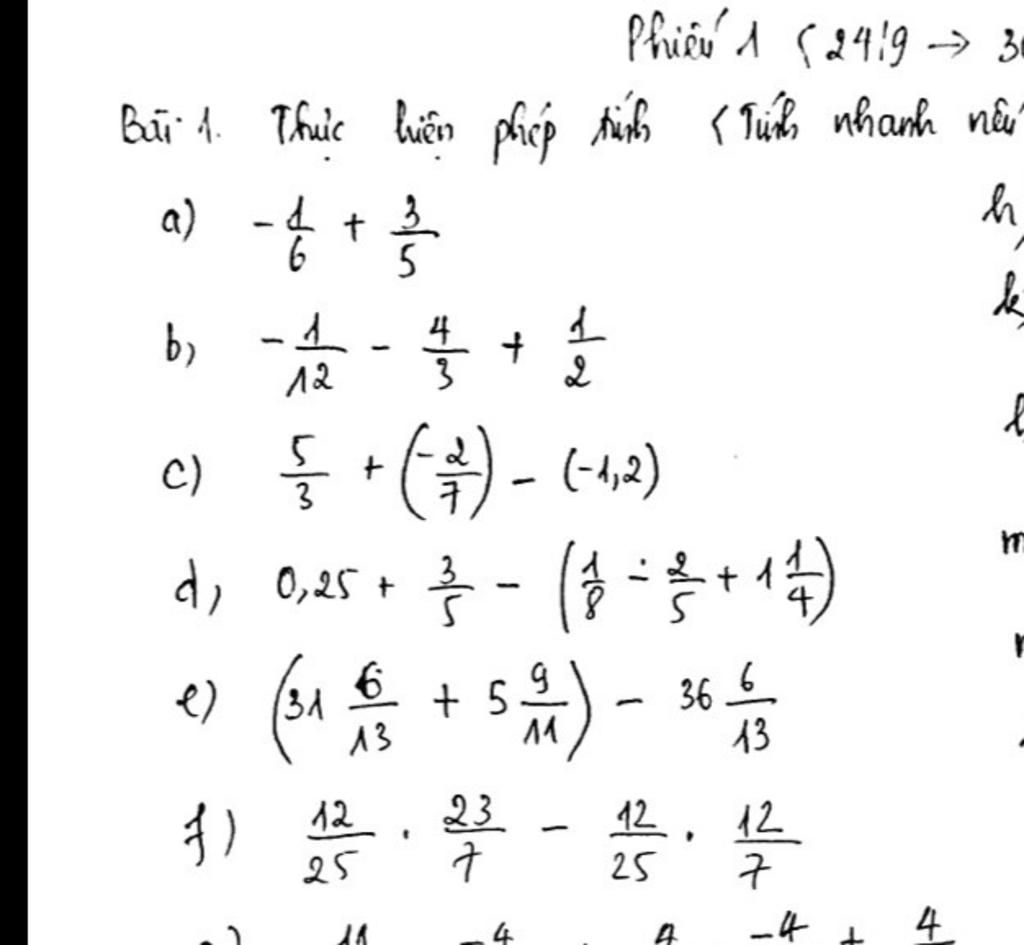 Phiếu 1 (24/9 → 30
Bài 1. Thực hiện phép tính (Tính nhanh nếu
a) -1/6 + 3/5
h,
b) -1/12 - 4/3 + 1/2
k,
c) 5/3 + (-2/7) - (-1,2)
l,
d) 0,25 + 3/5 - (1/8 - 2/5 + 1 1/4)
m
e) (31 6/13 + 5 9/11) - 36 6/13
f) 12/25 . 23/7 - 12/25 . 12/7